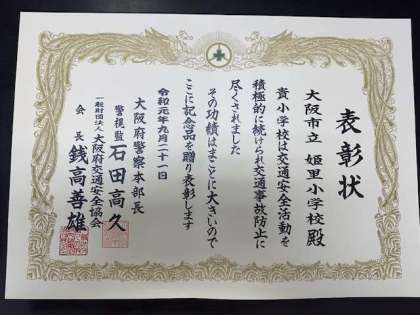 表彰状
大阪市立 姫里小学校殿
貴小学校は交通安全活動を
積極的に続けられ交通事故防止に
尽くされました
その功績はまことに大きいので
ここに記念品を贈り表彰します
令和元年九月二十一日
大阪府警察本部長
警視監 石田高久
一般財団法人 大阪府交通安全協会
会長 銭高善雄